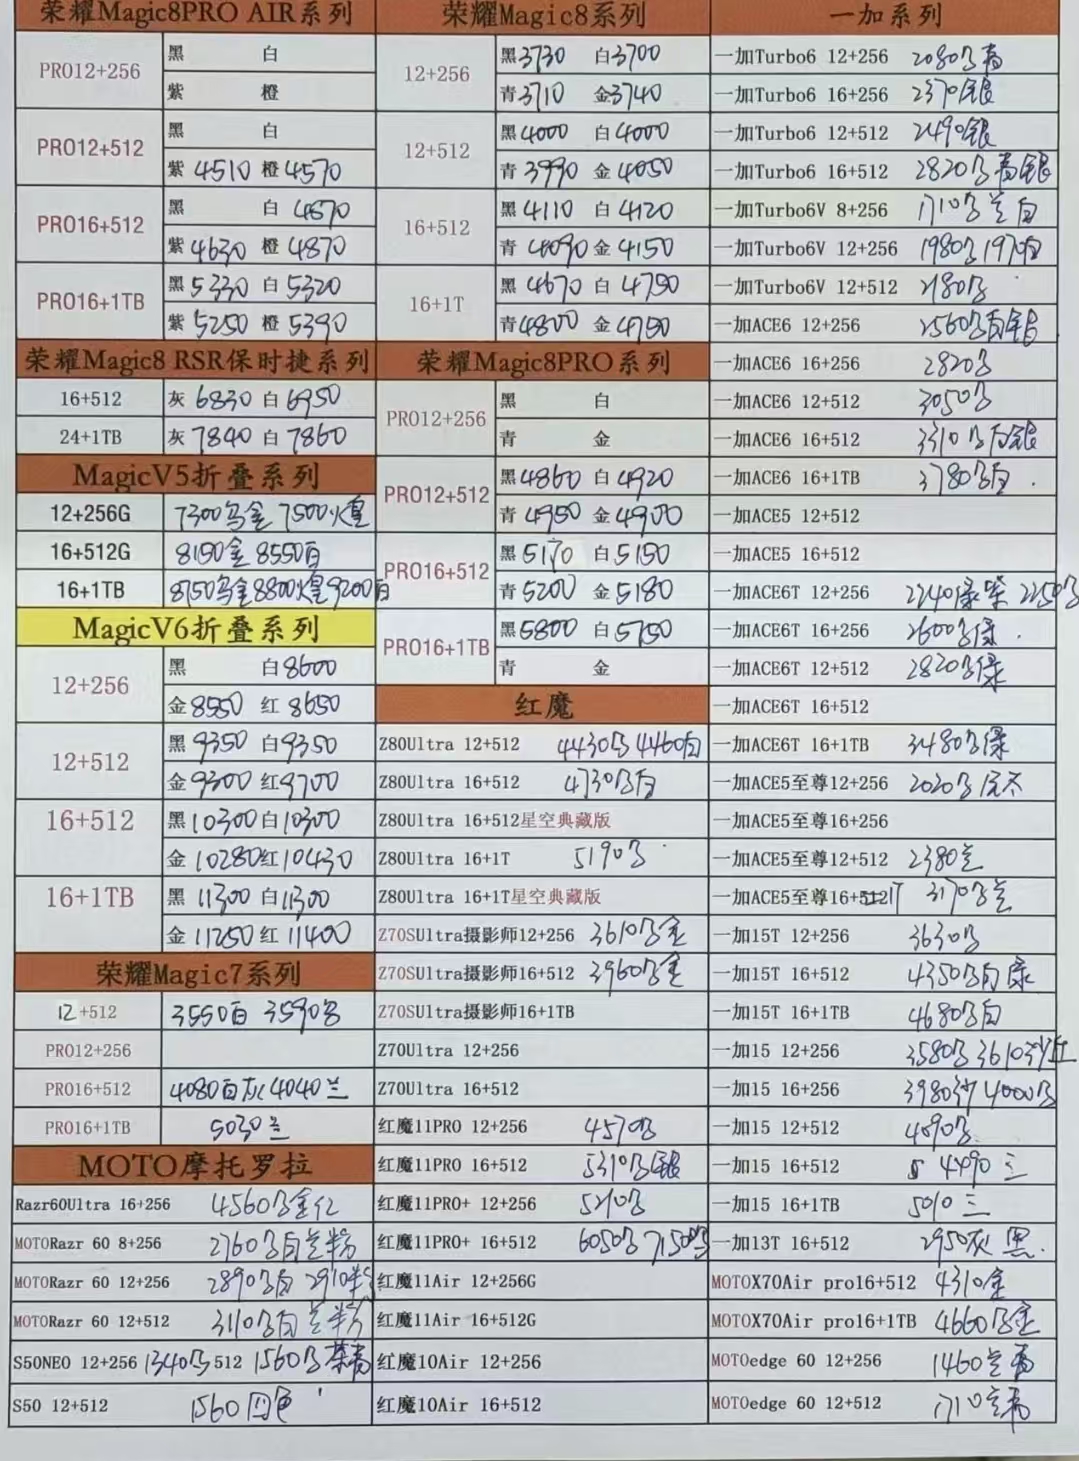 荣耀Magic8PRO AIR系列
PRO12+256
黑 白
紫 橙
PRO12+512
黑 白
紫 4510 橙 4570
PRO16+512
黑 白 4670
紫 4630 橙 4870
PRO16+1TB
黑 5330 白 5320
紫 5250 橙 5390
荣耀Magic8 RSR保时捷系列
16+512 灰 6830 白 6950
24+1TB 灰 7840 白 7860
MagicV5折叠系列
12+256G 7300乌金 7500火皇
16+512G 8150金 8550白
16+1TB 8750乌金 8800火皇 9200白
MagicV6折叠系列
12+256
黑 白 8600
金 8550 红 8650
12+512
黑 9350 白 9350
金 9300 红 9700
16+512
黑 10300 白 10300
金 10280 红 10430
16+1TB
黑 11300 白 11300
金 11250 红 11400
荣耀Magic7系列
12+512 3550白 3590
PRO12+256
PRO16+512 4080白灰 4040兰
PRO16+1TB 5030兰
MOTO摩托罗拉
Razr60Ultra 16+256 4560 金红
MOTORazr 60 8+256 2760 白兰粉
MOTORazr 60 12+256 2890 白 2910粉
MOTORazr 60 12+512 3110 白兰粉
S50NEO 12+256 1340 512 1560 茶青
S50 12+512 1560 四色
荣耀Magic8系列
12+256
黑 3730 白 3700
青 3710 金 3740
12+512
黑 4000 白 4000
青 3990 金 4050
16+512
黑 4110 白 4120
青 4090 金 4150
16+1T
黑 4670 白 4750
青 4800 金 4750
荣耀Magic8PRO系列
PRO12+256
黑 白
青 金
PRO12+512
黑 4860 白 4920
青 4950 金 4900
PRO16+512
黑 5170 白 5150
青 5200 金 5180
PRO16+1TB
黑 5800 白 5750
青 金
红魔
Z80Ultra 12+512 4430 4460白
Z80Ultra 16+512 4730 白
Z80Ultra 16+512星空典藏版
Z80Ultra 16+1T 5190
Z80Ultra 16+1T星空典藏版
Z70SUltra摄影师12+256 3610 金
Z70SUltra摄影师16+512 3960 金
Z70SUltra摄影师16+1TB
Z70Ultra 12+256
Z70Ultra 16+512
红魔11PRO 12+256 4570
红魔11PRO 16+512 5310 银
红魔11PRO+ 12+256 5210
红魔11PRO+ 16+512 6050 7150
红魔11Air 12+256G
红魔11Air 16+512G
红魔10Air 12+256
红魔10Air 16+512
一加系列
一加Turbo6 12+256 2080 青
一加Turbo6 16+256 2370银
一加Turbo6 12+512 2490银
一加Turbo6 16+512 2820 青银
一加Turbo6V 8+256 1710 兰白
一加Turbo6V 12+256 1980 1970白
一加Turbo6V 12+512 2180
一加ACE6 12+256 2560 白银
一加ACE6 16+256 2820
一加ACE6 12+512 3050
一加ACE6 16+512 3310 白银
一加ACE6 16+1TB 3780 白
一加ACE5 12+512
一加ACE5 16+512
一加ACE6T 12+256 2240绿紫 2250
一加ACE6T 16+256 2600 绿
一加ACE6T 12+512 2820 绿
一加ACE6T 16+512
一加ACE6T 16+1TB 3480 绿
一加ACE5至尊12+256 2020
一加ACE5至尊16+256
一加ACE5至尊12+512 2380兰
一加ACE5至尊16+1T 3170 兰
一加15T 12+256 3630
一加15T 16+512 4350 白绿
一加15T 16+1TB 4680 白
一加15 12+256 3580 3610沙丘
一加15 16+256 3980沙 4000
一加15 12+512 4090
一加15 16+512 4490 三
一加15 16+1TB 5010 三
一加13T 16+512 2950灰 黑
MOTOX70Air pro16+512 4310金
MOTOX70Air pro16+1TB 4660 金
MOTOedge 60 12+256 1460兰青
MOTOedge 60 12+512 1710兰青